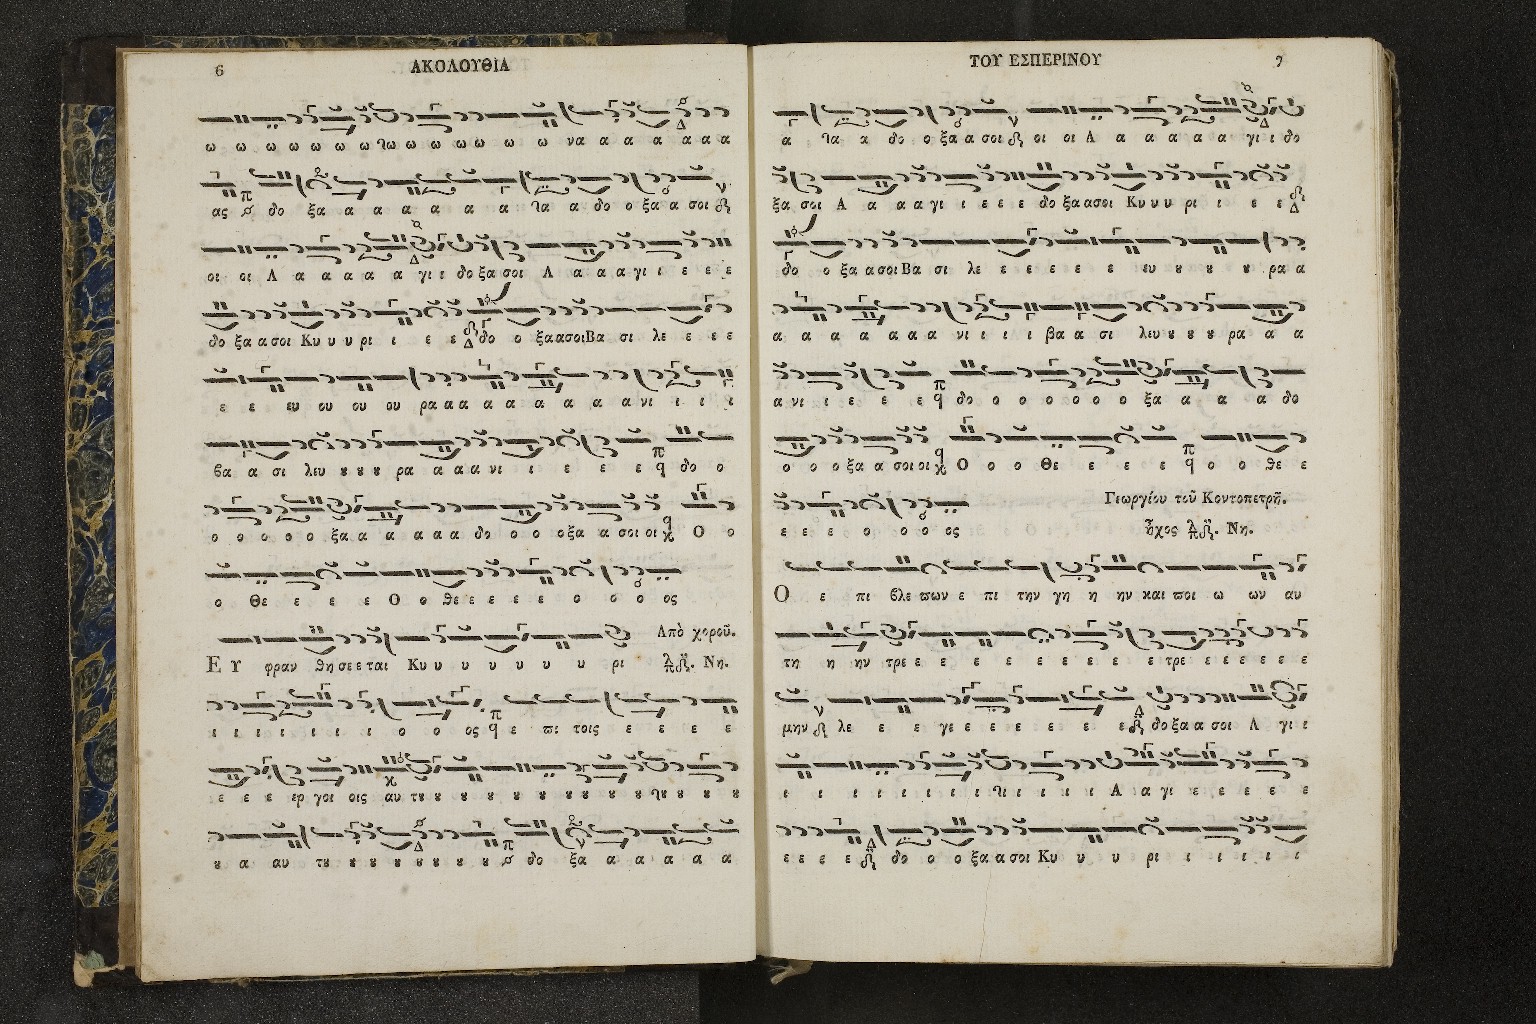 6
ΑΚΟΛΟΥΘΙΑ
ω ω ω ω ω ω ω ω ω ω ω ω ω ω να α α α α α α
ας δο ξα α α α α α α α α δο ο ξα α σοι
οι οι Α α α α α α γι ε δο ξα σοι Α α α α γι ι ε ε ε
δο ξα α σοι Κυ υ υ ρι ι ε ε δο ο ξα α σοι Βα σι λε ε ε ε
ε ε ευ ου ου ου ρα α α α α α α α α νι ι ι ι
βα α σι λευ ȣ ȣ ȣ ρα α α α νι ι ε ε ε ε δο ο
ο ο ο ο ο ξα α α α α α δο ο ο ο ξα α σοι οι Ο ο
ο Θε ε ε ε Ο ο θε ε ε ε ε ο ο ο ος
Απὸ χοροῦ.
ΕΥ φραν θη σε ε ται Κυ υ υ υ υ υ υ ρι Νη.
ι ι ι ι ι ι ι ο ο ος ε πι τοις ε ε ε ε
ε ε ε ερ γοι οις αυ τȣ ȣ ȣ ȣ ȣ ȣ ȣ ȣ ȣ ȣ ȣ ȣ ȣ ȣ
ȣ α αυ τȣ ȣ ȣ ȣ ȣ ȣ ȣ ȣ δο ξα α α α α α
ΤΟΥ ΕΣΠΕΡΙΝΟΥ
7
α α α δο ο ξα α σοι οι οι Α α α α α α γι ε δο
ξα σοι Α α α α γι ι ε ε ε δο ξα α σοι Κυ υ υ ρι ι ε ε
δο ο ξα α σοι Βα σι λε ε ε ε ε ε ευ ȣ ȣ ȣ ρα α
α α α α α α α νι ι ι ι βα α σι λευ ȣ ȣ ȣ ρα α α
α νι ι ε ε ε ε δο ο ο ο ο ο ο ξα α α α α δο
ο ο ο ξα α σοι οι Ο ο ο Θε ε ε ε ε ο ο θε ε
Γεωργίου τοῦ Κοντοπετρῆ.
ε ε ε ο ο ο ος ἦχος Νη.
Ο ε πι βλε πων ε πι την γη η ην και ποι ω ων αυ
τη η ην τρε ε ε ε ε ε ε ε ε ε τρε ε ε ε ε ε ε
μην λε ε ε γε ε ε ε ε ε ε δο ξα α σοι Α γι ε
ι ι ι ι ι ι ι ι ι ι ι ι Α α γι ε ε ε ε ε
ε ε ε ε δο ο ο ξα α σοι Κυ υ υ ρι ι ι ι ι ι